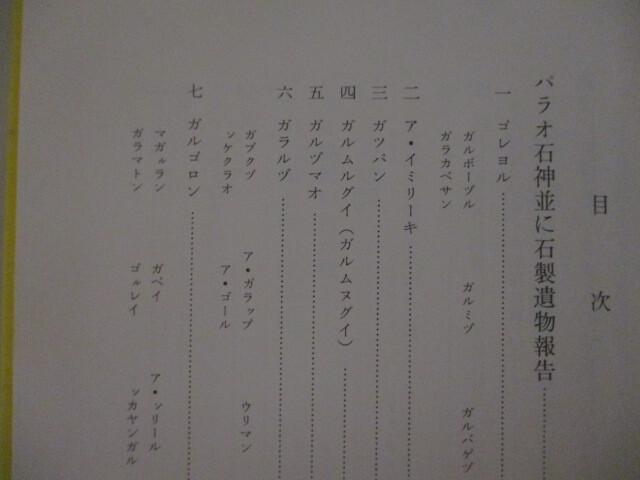 目次
パラオ石神並に石製遺物報告
一 ゴレヨル
ガルボーヅル ガルミヅ ガルパゲヅ
ガラカベサン
二 ア・イミリーキ
三 ガツパン
四 ガルムルグイ(ガルムヌグイ)
五 ガルヅマオ
六 ガラルヅ
ガブクヅ ア・ガラップ ウリマン
ッケクラオ ア・ゴール
七 ガルゴロン
マガルラン ガベイ ア・ッリール
ガラマトン ゴルレイ ッカヤンガル